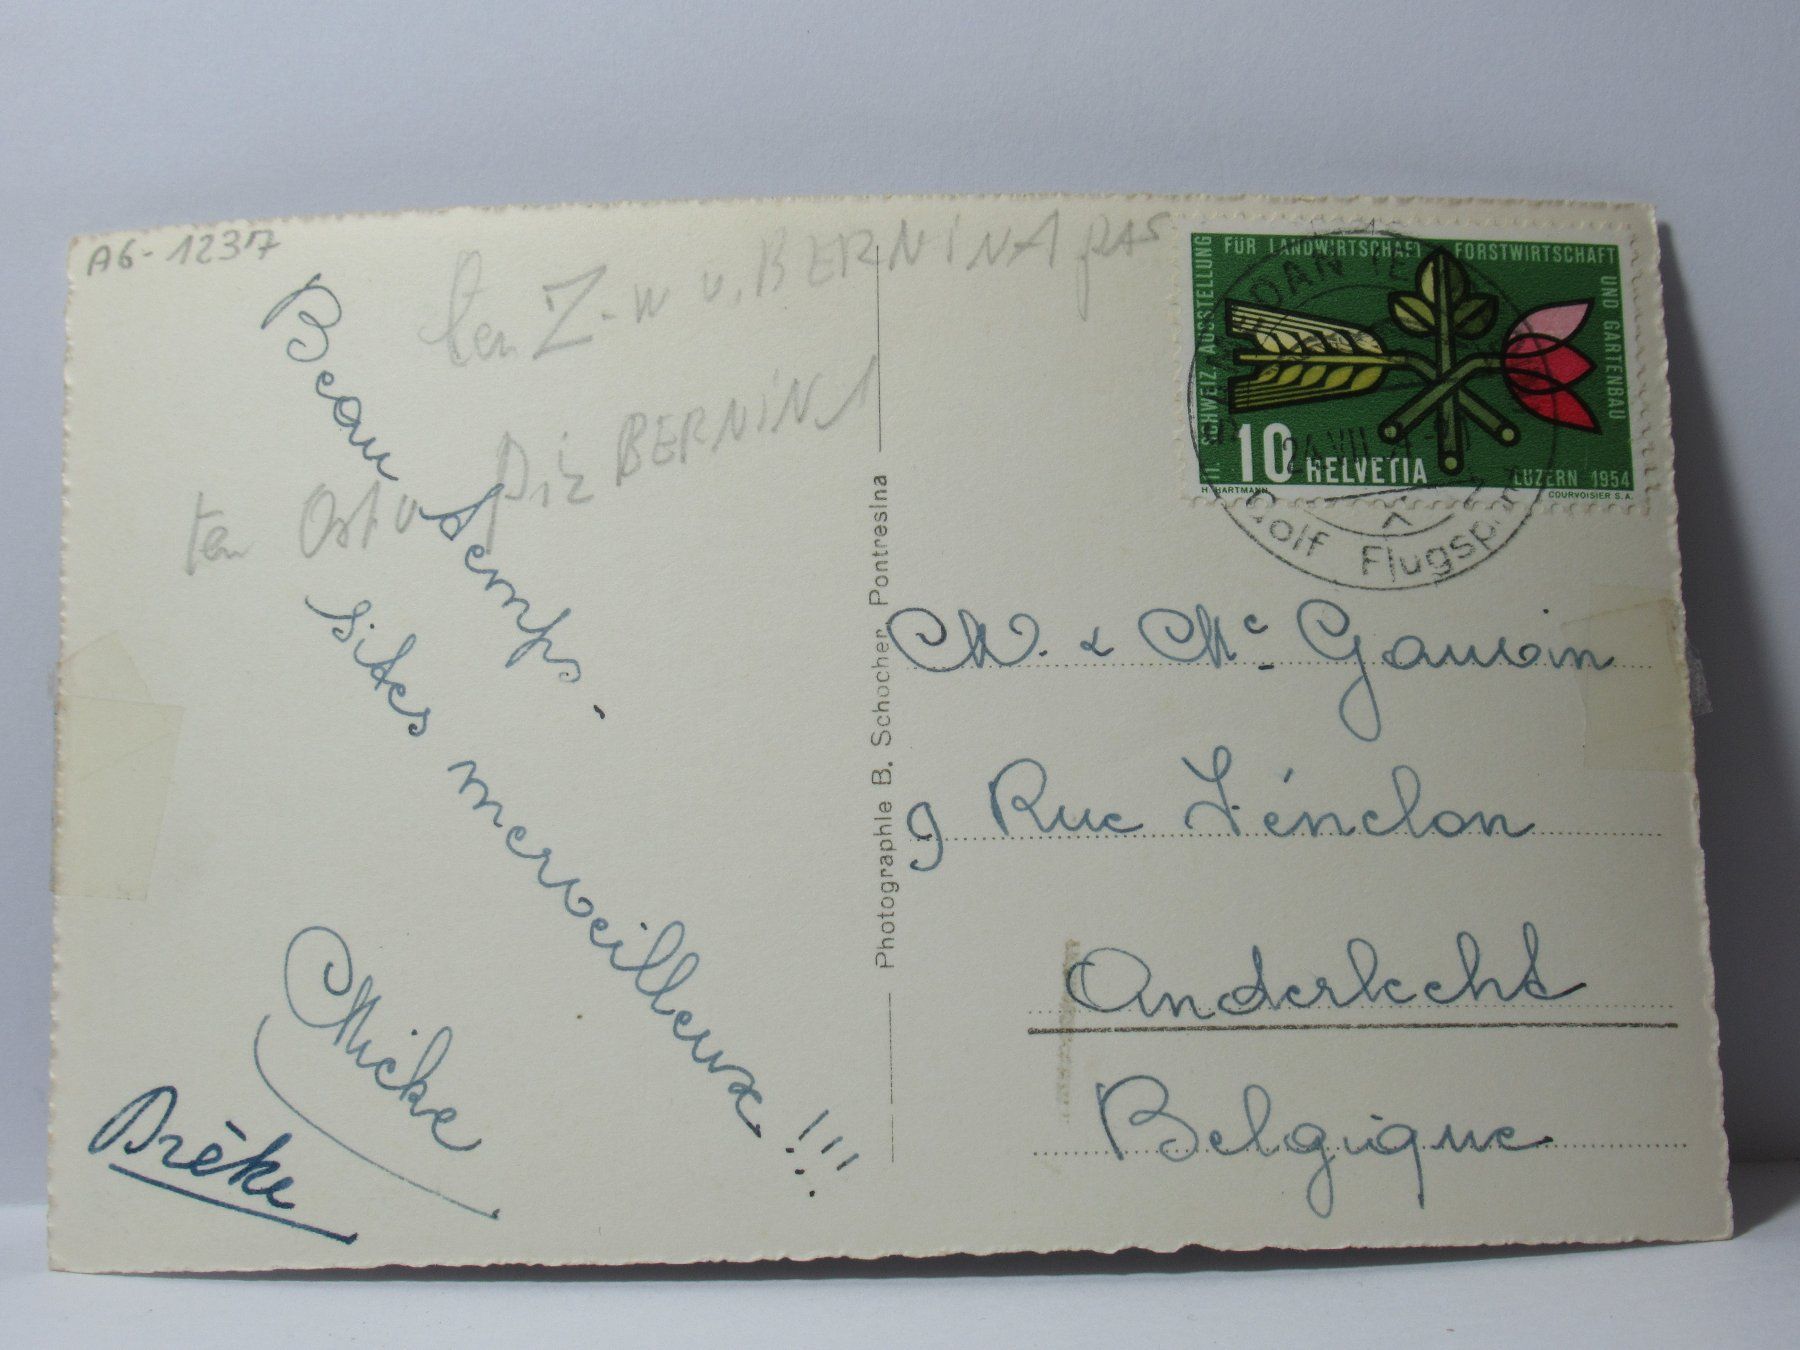 A6-1237
ten Z-w v. BERNINA pas
ten Oost v Piz BERNINA
Beau temps.
sites merveilleux !!!
Micke
Drēke
Photographie B. Schocher, Pontresina
11. SCHWEIZ. AUSSTELLUNG FÜR LANDWIRTSCHAFT FORSTWIRTSCHAFT UND GARTENBAU
10 HELVETIA
LUZERN 1954
H. HARTMANN
COURVOISIER S.A.
24.VII
Golf Flugsp
M. & Me Gauvin
9 Rue Fénelon
Anderlecht
Belgique